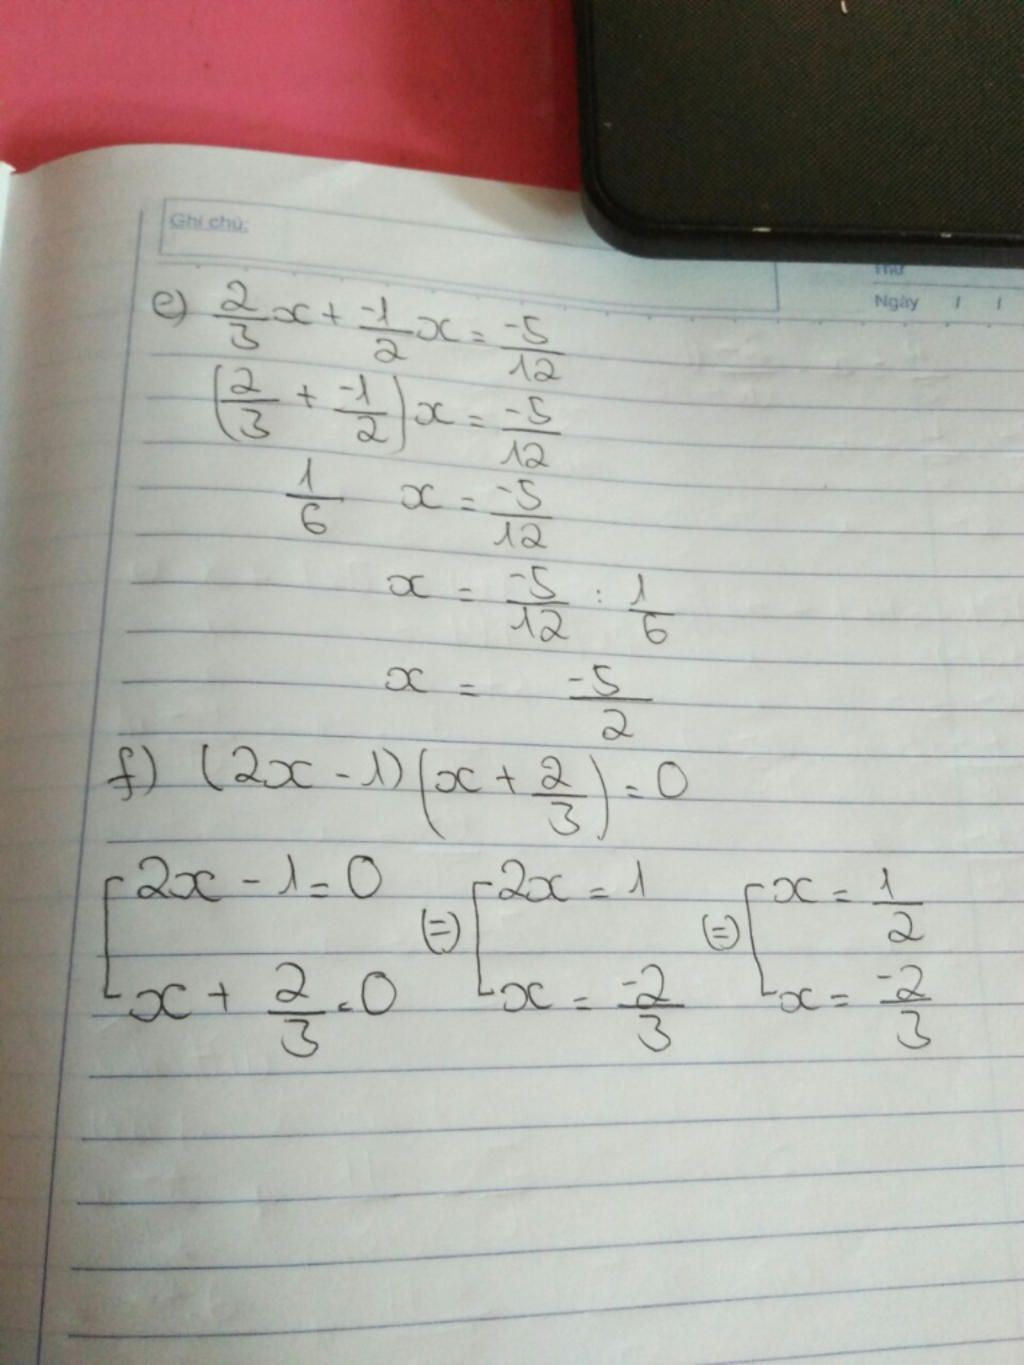 Ghi chú:
Thứ
Ngày / /
e) 2/3 x + -1/2 x = -5/12
(2/3 + -1/2) x = -5/12
1/6 x = -5/12
x = -5/12 : 1/6
x = -5/2
f) (2x - 1)(x + 2/3) = 0
[2x - 1 = 0 (=) [2x = 1 (=) [x = 1/2
x + 2/3 = 0 x = -2/3 x = -2/3